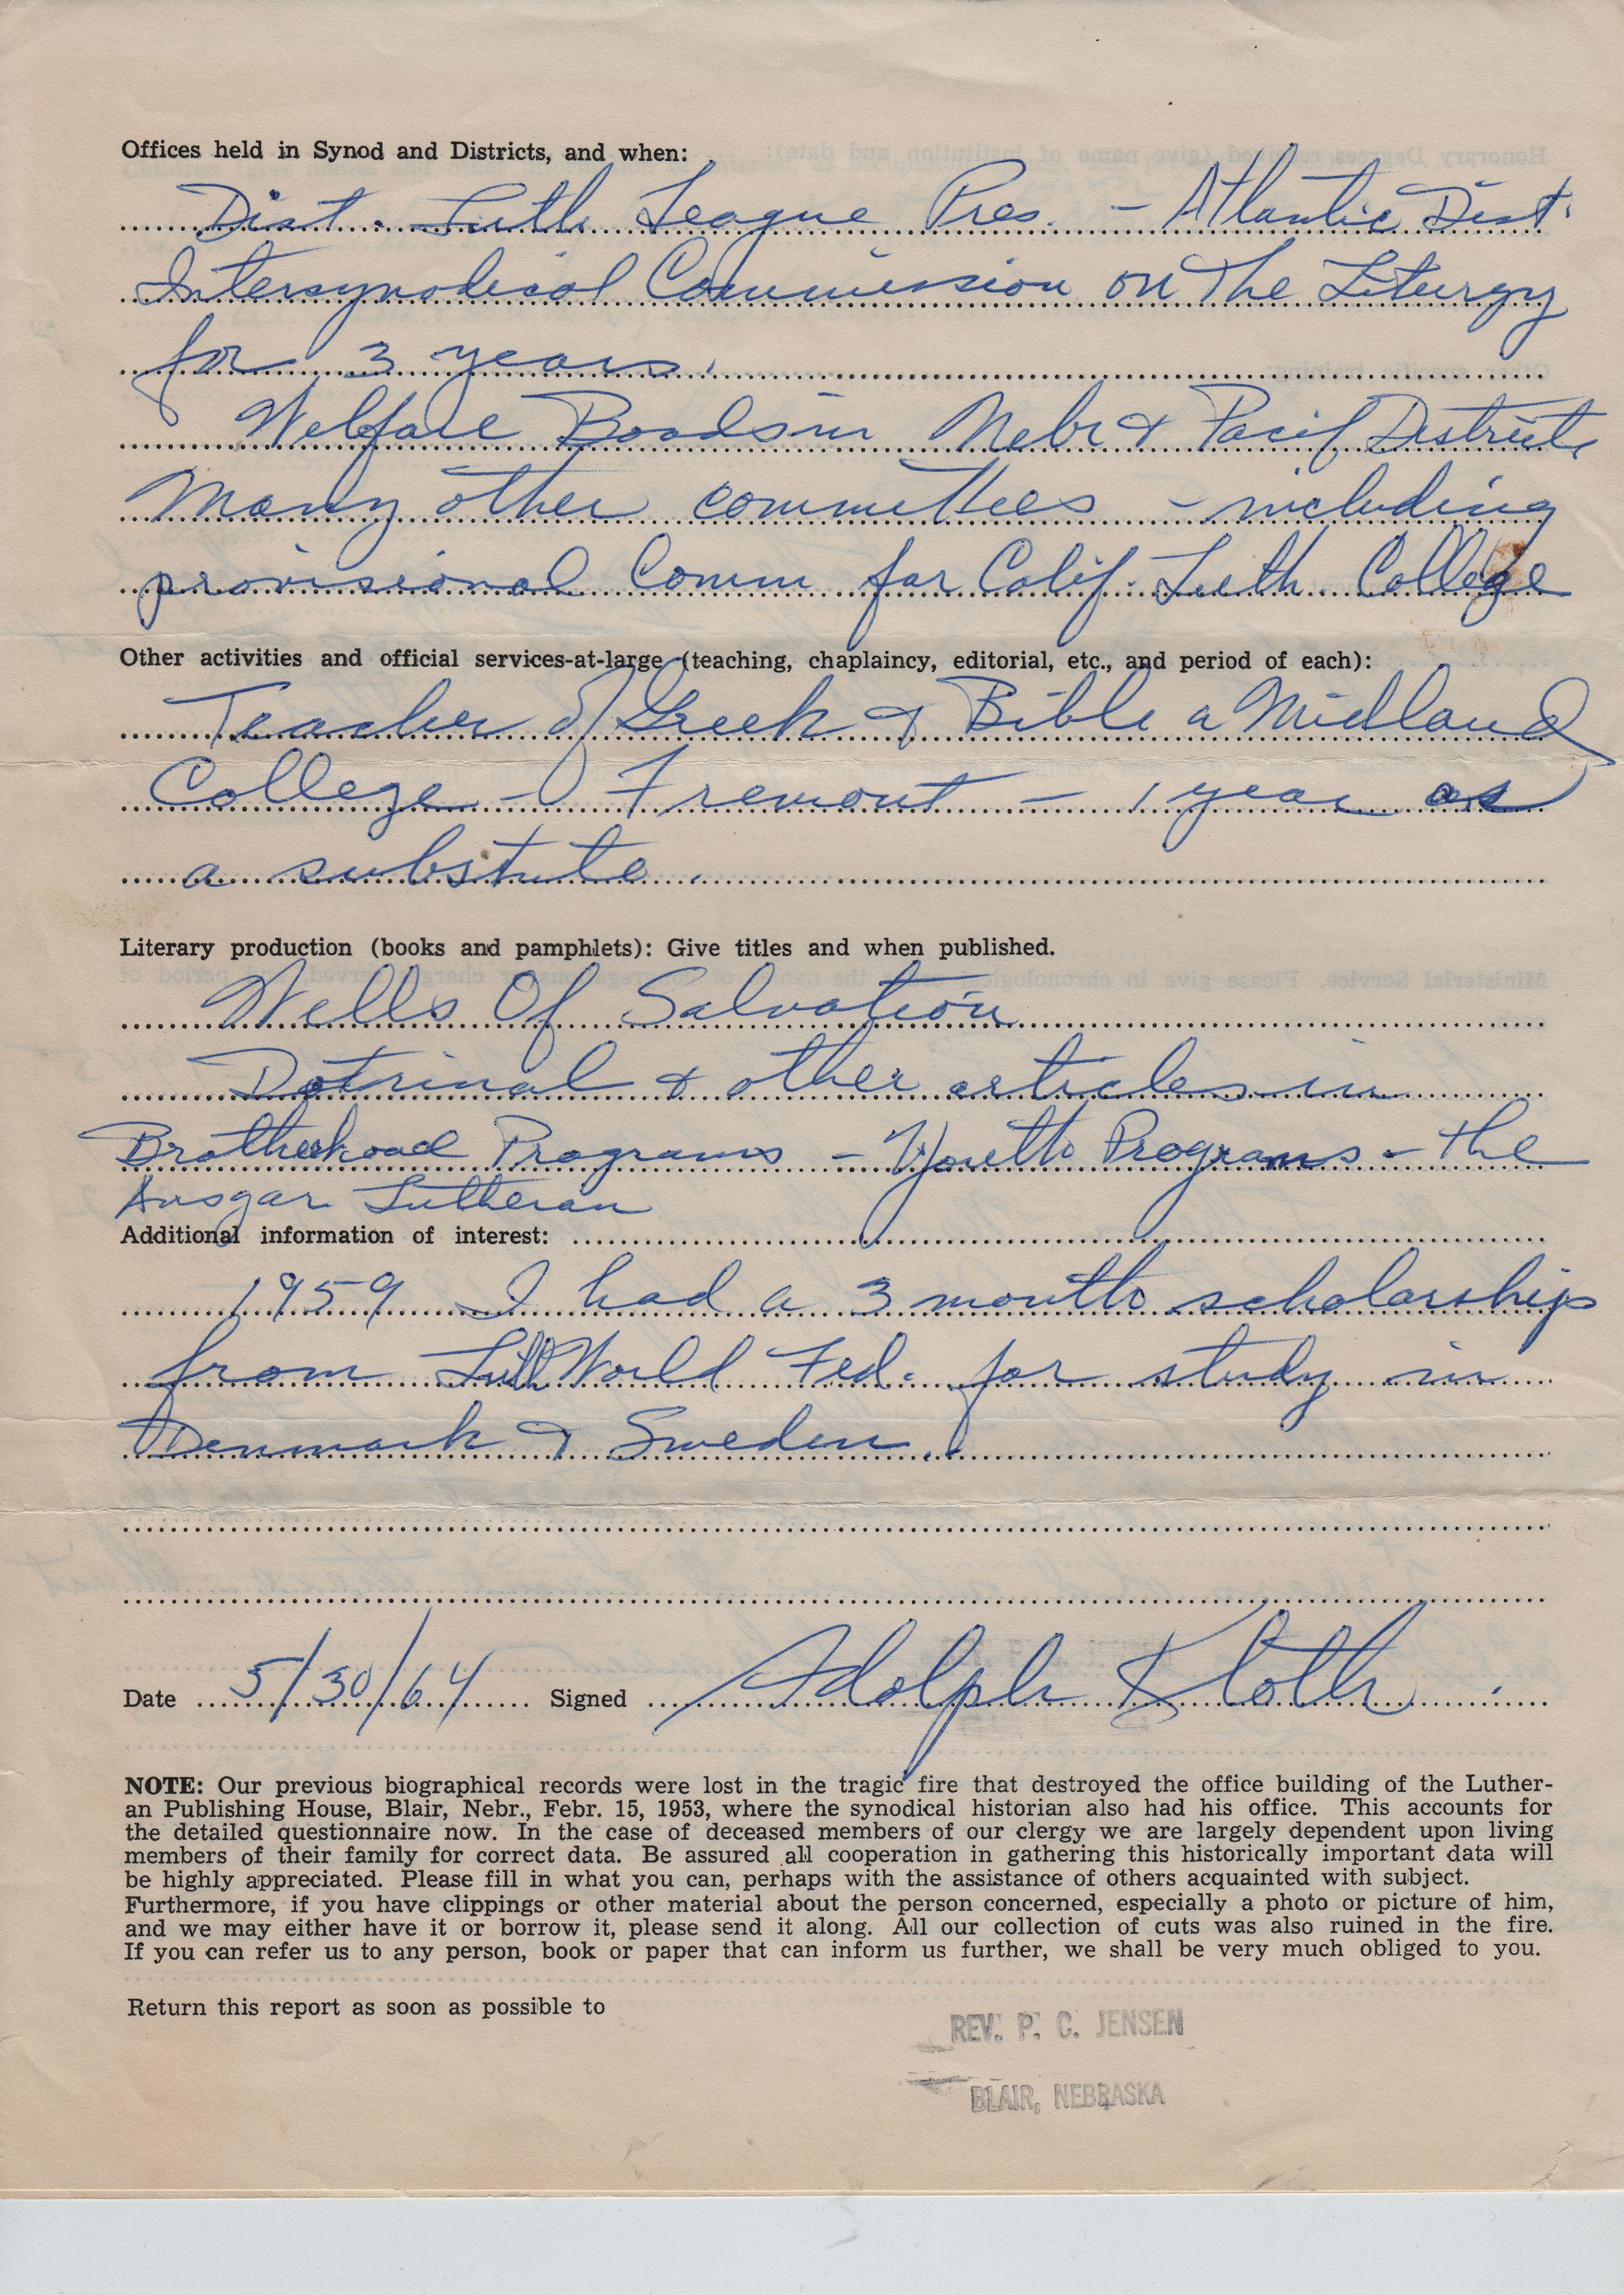 Offices held in Synod and Districts, and when:
Dist. Luth League Pres. - Atlantic Dist.
Intersynodical Commission on the Liturgy
for 3 years.
Welfare Boads in Nebr & Pacif Districts
Many other committees - including
provisional Comm for Calif. Luth College
Other activities and official services-at-large (teaching, chaplaincy, editorial, etc., and period of each):
Teacher of Greek & Bible a Midland
College - Fremont - 1 year as
a substute.
Literary production (books and pamphlets): Give titles and when published.
Wells Of Salvation
Dotrinal & other articles in
Brotherhood Programs - Youth Programs - the
Ansgar Lutheran
Additional information of interest:
1959 I had a 3 month scholarship
from Luth World Fed. for study in
Denmark & Sweden.
Date 5/30/64 Signed Adolph Kloth
NOTE: Our previous biographical records were lost in the tragic fire that destroyed the office building of the Luther-
an Publishing House, Blair, Nebr., Febr. 15, 1953, where the synodical historian also had his office. This accounts for
the detailed questionnaire now. In the case of deceased members of our clergy we are largely dependent upon living
members of their family for correct data. Be assured all cooperation in gathering this historically important data will
be highly appreciated. Please fill in what you can, perhaps with the assistance of others acquainted with subject.
Furthermore, if you have clippings or other material about the person concerned, especially a photo or picture of him,
and we may either have it or borrow it, please send it along. All our collection of cuts was also ruined in the fire.
If you can refer us to any person, book or paper that can inform us further, we shall be very much obliged to you.
Return this report as soon as possible to
REV. P. C. JENSEN
BLAIR, NEBRASKA